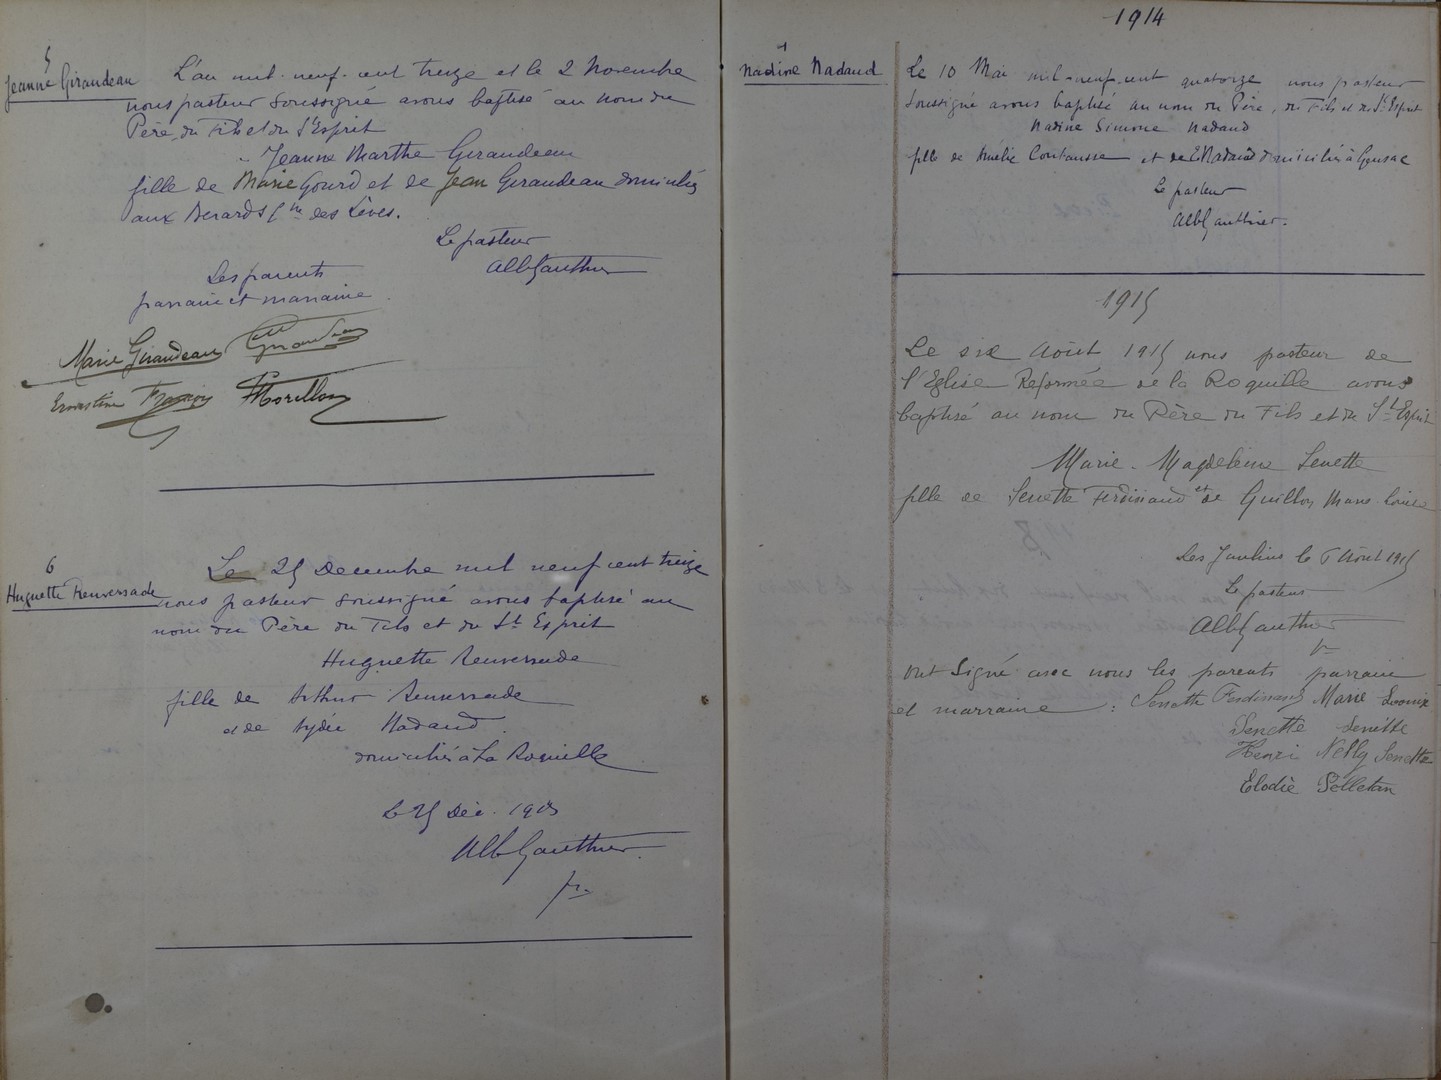 5
Jeanne Girandeau
L'an mil-neuf-cent treize et le 2 Novembre
nous pasteur soussigné avons baptisé au nom du
Père, du Fils et du St Esprit
Jeanne Marthe Girandeau
fille de Marie Gourd et de Jean Girandeau domiciliés
aux Berards Cne des Lèves.
Le pasteur
Alb Gauthier
Les parents
parrain et marraine
Marie Girandeau Girandeau
Ernestine François Morillon
6
Huguette Renversade
Le 25 Decembre mil neuf cent treize
nous pasteur soussigné avons baptisé au
nom du Père du Fils et du St Esprit
Huguette Renversade
fille de Arthur Renversade
et de Lydie Nadaud
domiciliés à La Roquille
Le 25 Déc. 1913
Alb Gauthier
pr
1914
1
Nadine Nadaud
Le 10 Mai mil-neuf-cent quatorze nous pasteur
soussigné avons baptisé au nom du Père, du Fils et du St Esprit
Nadine Simone Nadaud
fille de Amélie Coutausse et de E Nadaud domiciliés à Gensac
Le pasteur
Alb Gauthier.
1915
Le six Août 1915 nous pasteur de
l'Eglise Reformée de la Roquille avons
baptisé au nom du Père du Fils et du St Esprit
Marie-Magdeleine Senette
fille de Senette Ferdinand et de Guillon Marie Louise
Les Jaulins le 6 Août 1915
Le pasteur
Alb Gauthier
pr
Ont signé avec nous les parents parrain
et marraine : Senette Ferdinand Marie Louise
Senette Senette
Henri Nelly Senette
Elodie Pelletan